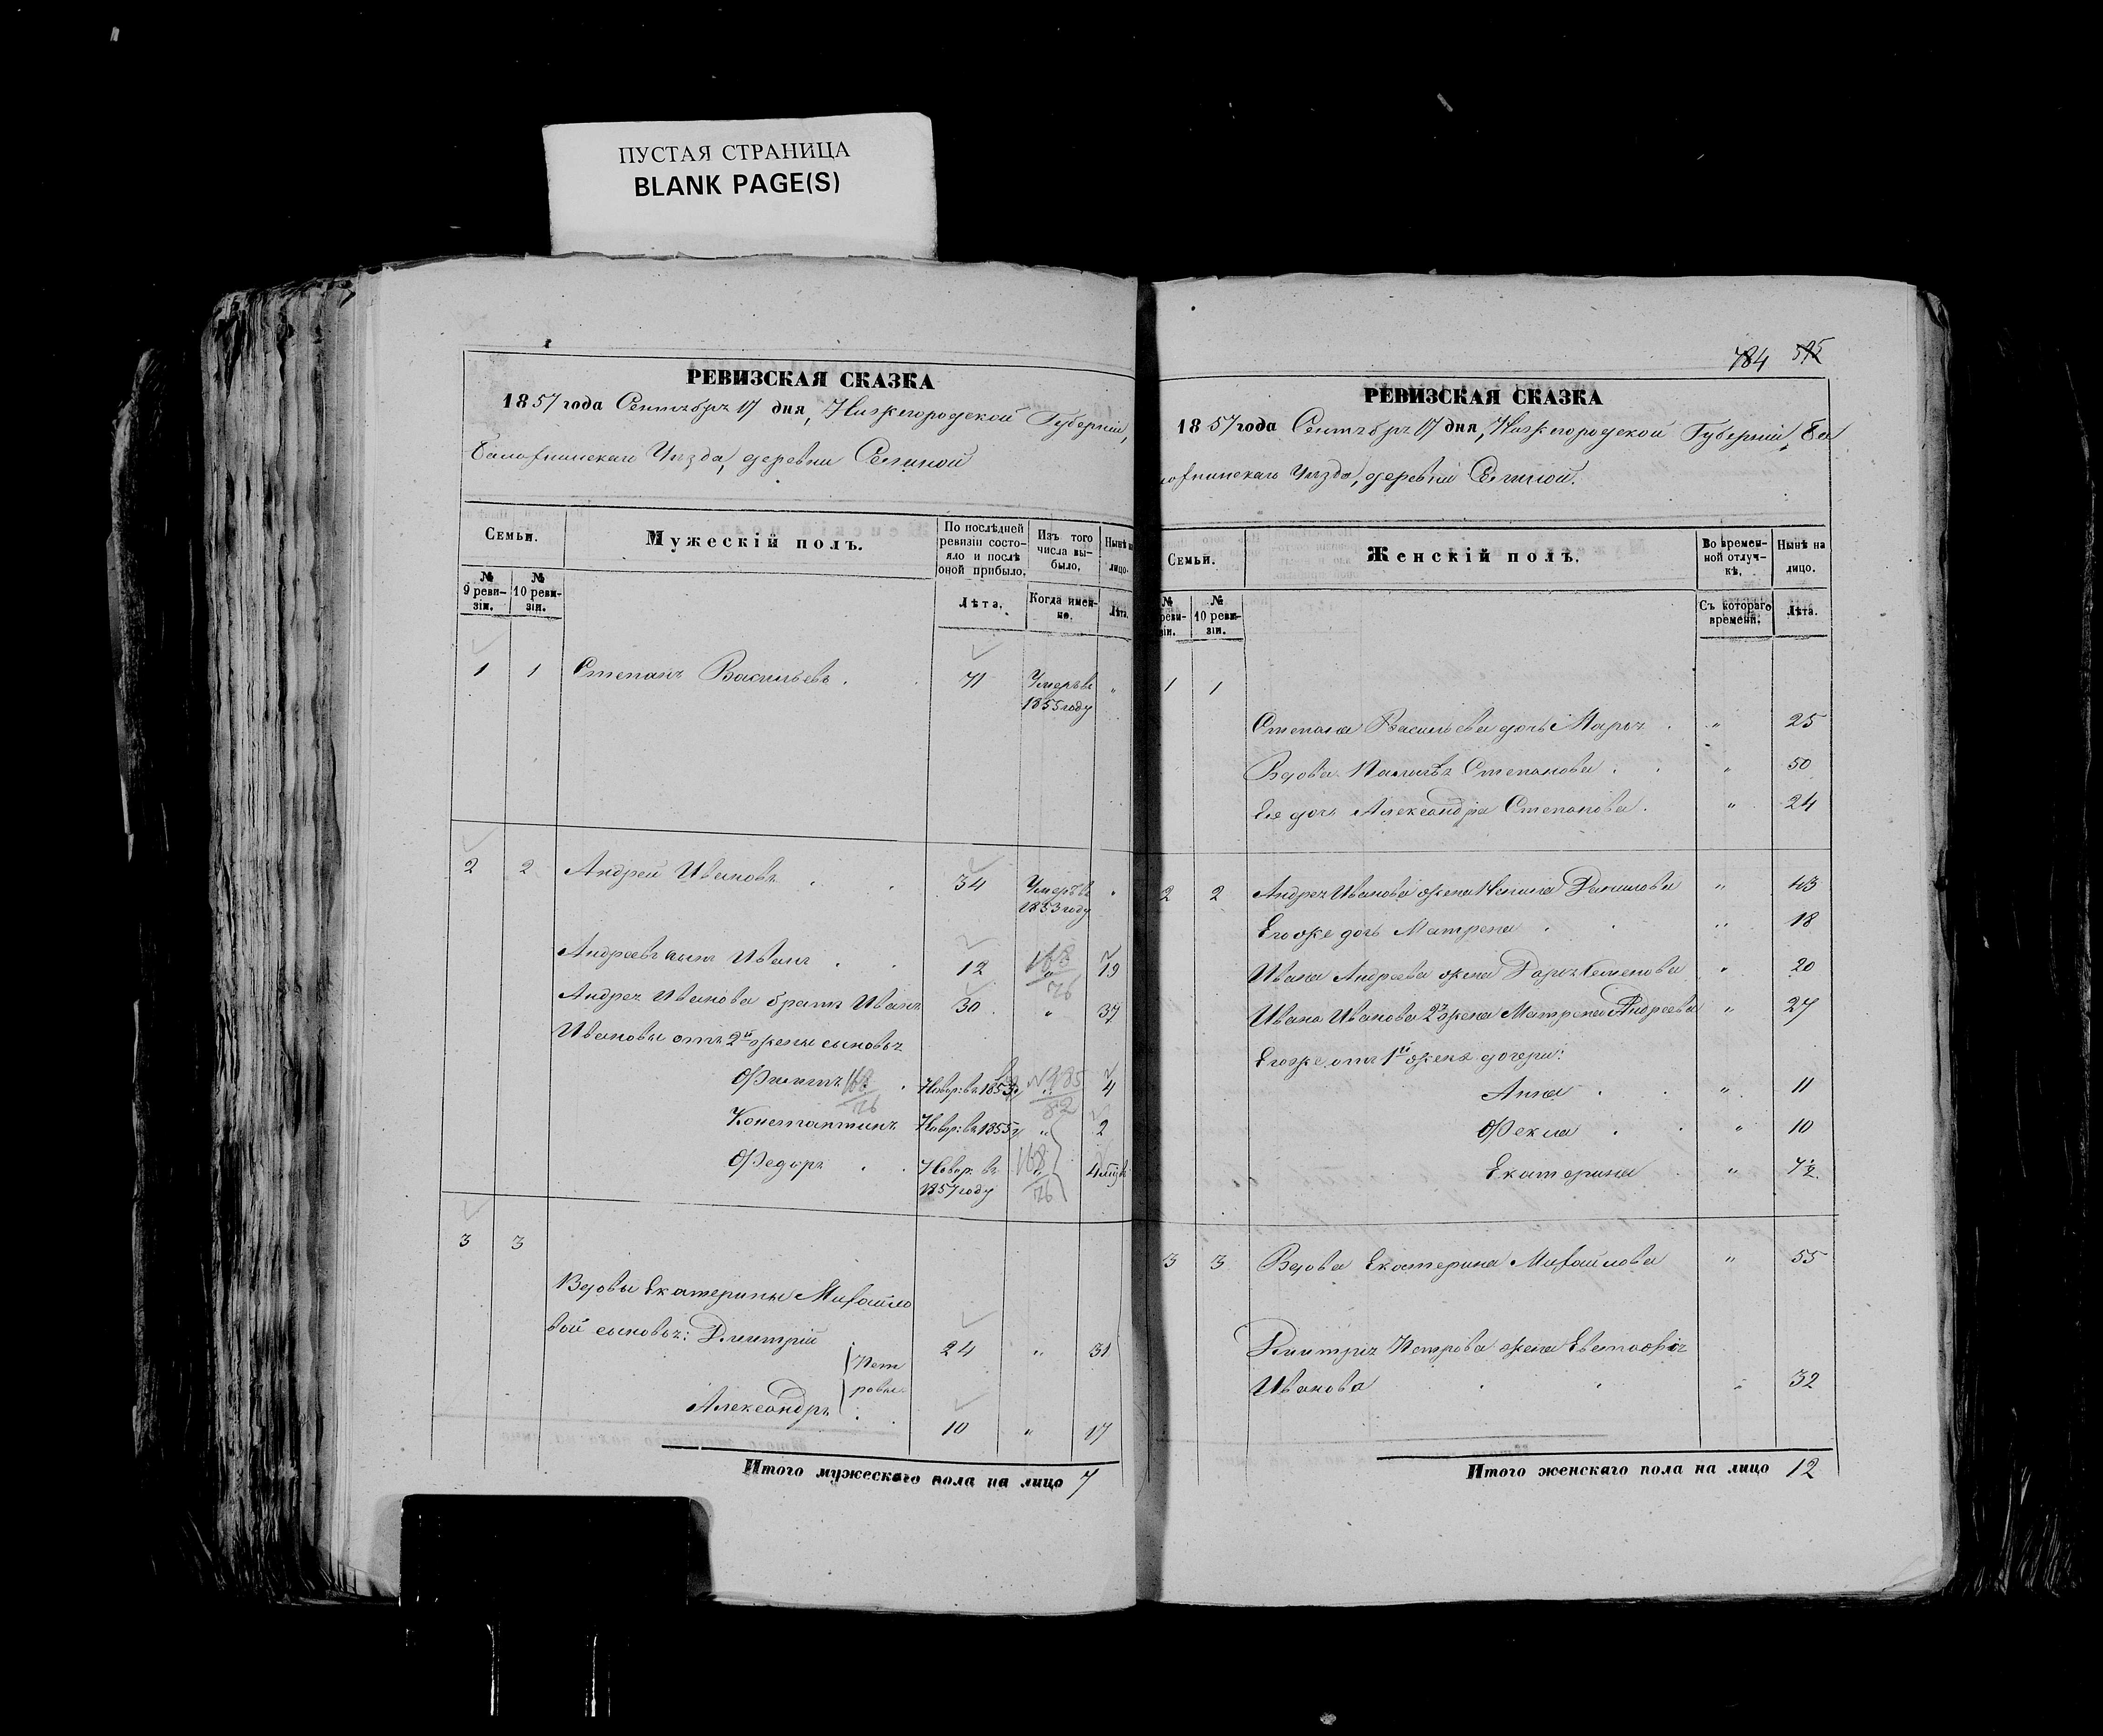 ПУСТАЯ СТРАНИЦА
BLANK PAGE(S)
РЕВИЗСКАЯ СКАЗКА
1857 года Сентября 17 дня, Нижегородской Губерніи,
Балахнинскаго Уѣзда, деревни
Семьи.
Мужескій полъ.
По послѣдней ревизіи состояло и послѣ оной прибыло.
Изъ того числа выбыло.
Нынѣ на лицо.
№ 9 ревизіи.
№ 10 ревизіи.
Лѣта.
Когда именно.
Лѣта.
1 1 Степанъ Васильевъ . 71 Умеръ въ 1855 году "
2 2 Андрей Ивановъ . . 34 Умеръ въ 1853 году
Андреевъ сынъ Иванъ . . 12 " 19
Андрея Иванова братъ Иванъ 30 " 37
Ивановы отъ 2й жены сыновья
Филитъ Новор: въ 1853 г " 4
Константинъ Новор: въ 1855 г " 2
Федоръ . . Новор. въ 1857 году " 4 мѣс
3 3
Вдовы Екатерины Михайло
вой сыновья: Дмитрій 24 " 31
Пет
ровы
Александръ . . 10 " 17
Итого мужескаго пола на лицо 7
784
РЕВИЗСКАЯ СКАЗКА
1857 года Сентября 17 дня, Нижегородской Губерніи, Ба
лахнинскаго Уѣзда, деревни
Семьи.
Женскій полъ.
Во временной отлучкѣ.
Нынѣ на лицо.
№ ревизіи.
№ 10 ревизіи.
Съ котораго времени.
Лѣта.
1 1
Степана Васильева дочь Марья . " 25
Вдова Степанова . . " 50
Ея дочь Александра Степанова . " 24
2 2 Андрея Иванова жена Данилова " 43
Его же дочь Матрена . . " 18
Ивана Андреева жена Дарья Семенова " 20
Ивана Иванова 2я жена Матрена Андреева " 27
Его же отъ 1й жены дочери:
Анна . . " 11
Фекла . . " 10
Екатерина . "
3 3 Вдова Екатерина Михайлова " 55
Дмитрія Петрова жена
Иванова . . " 32
Итого женскаго пола на лицо 12